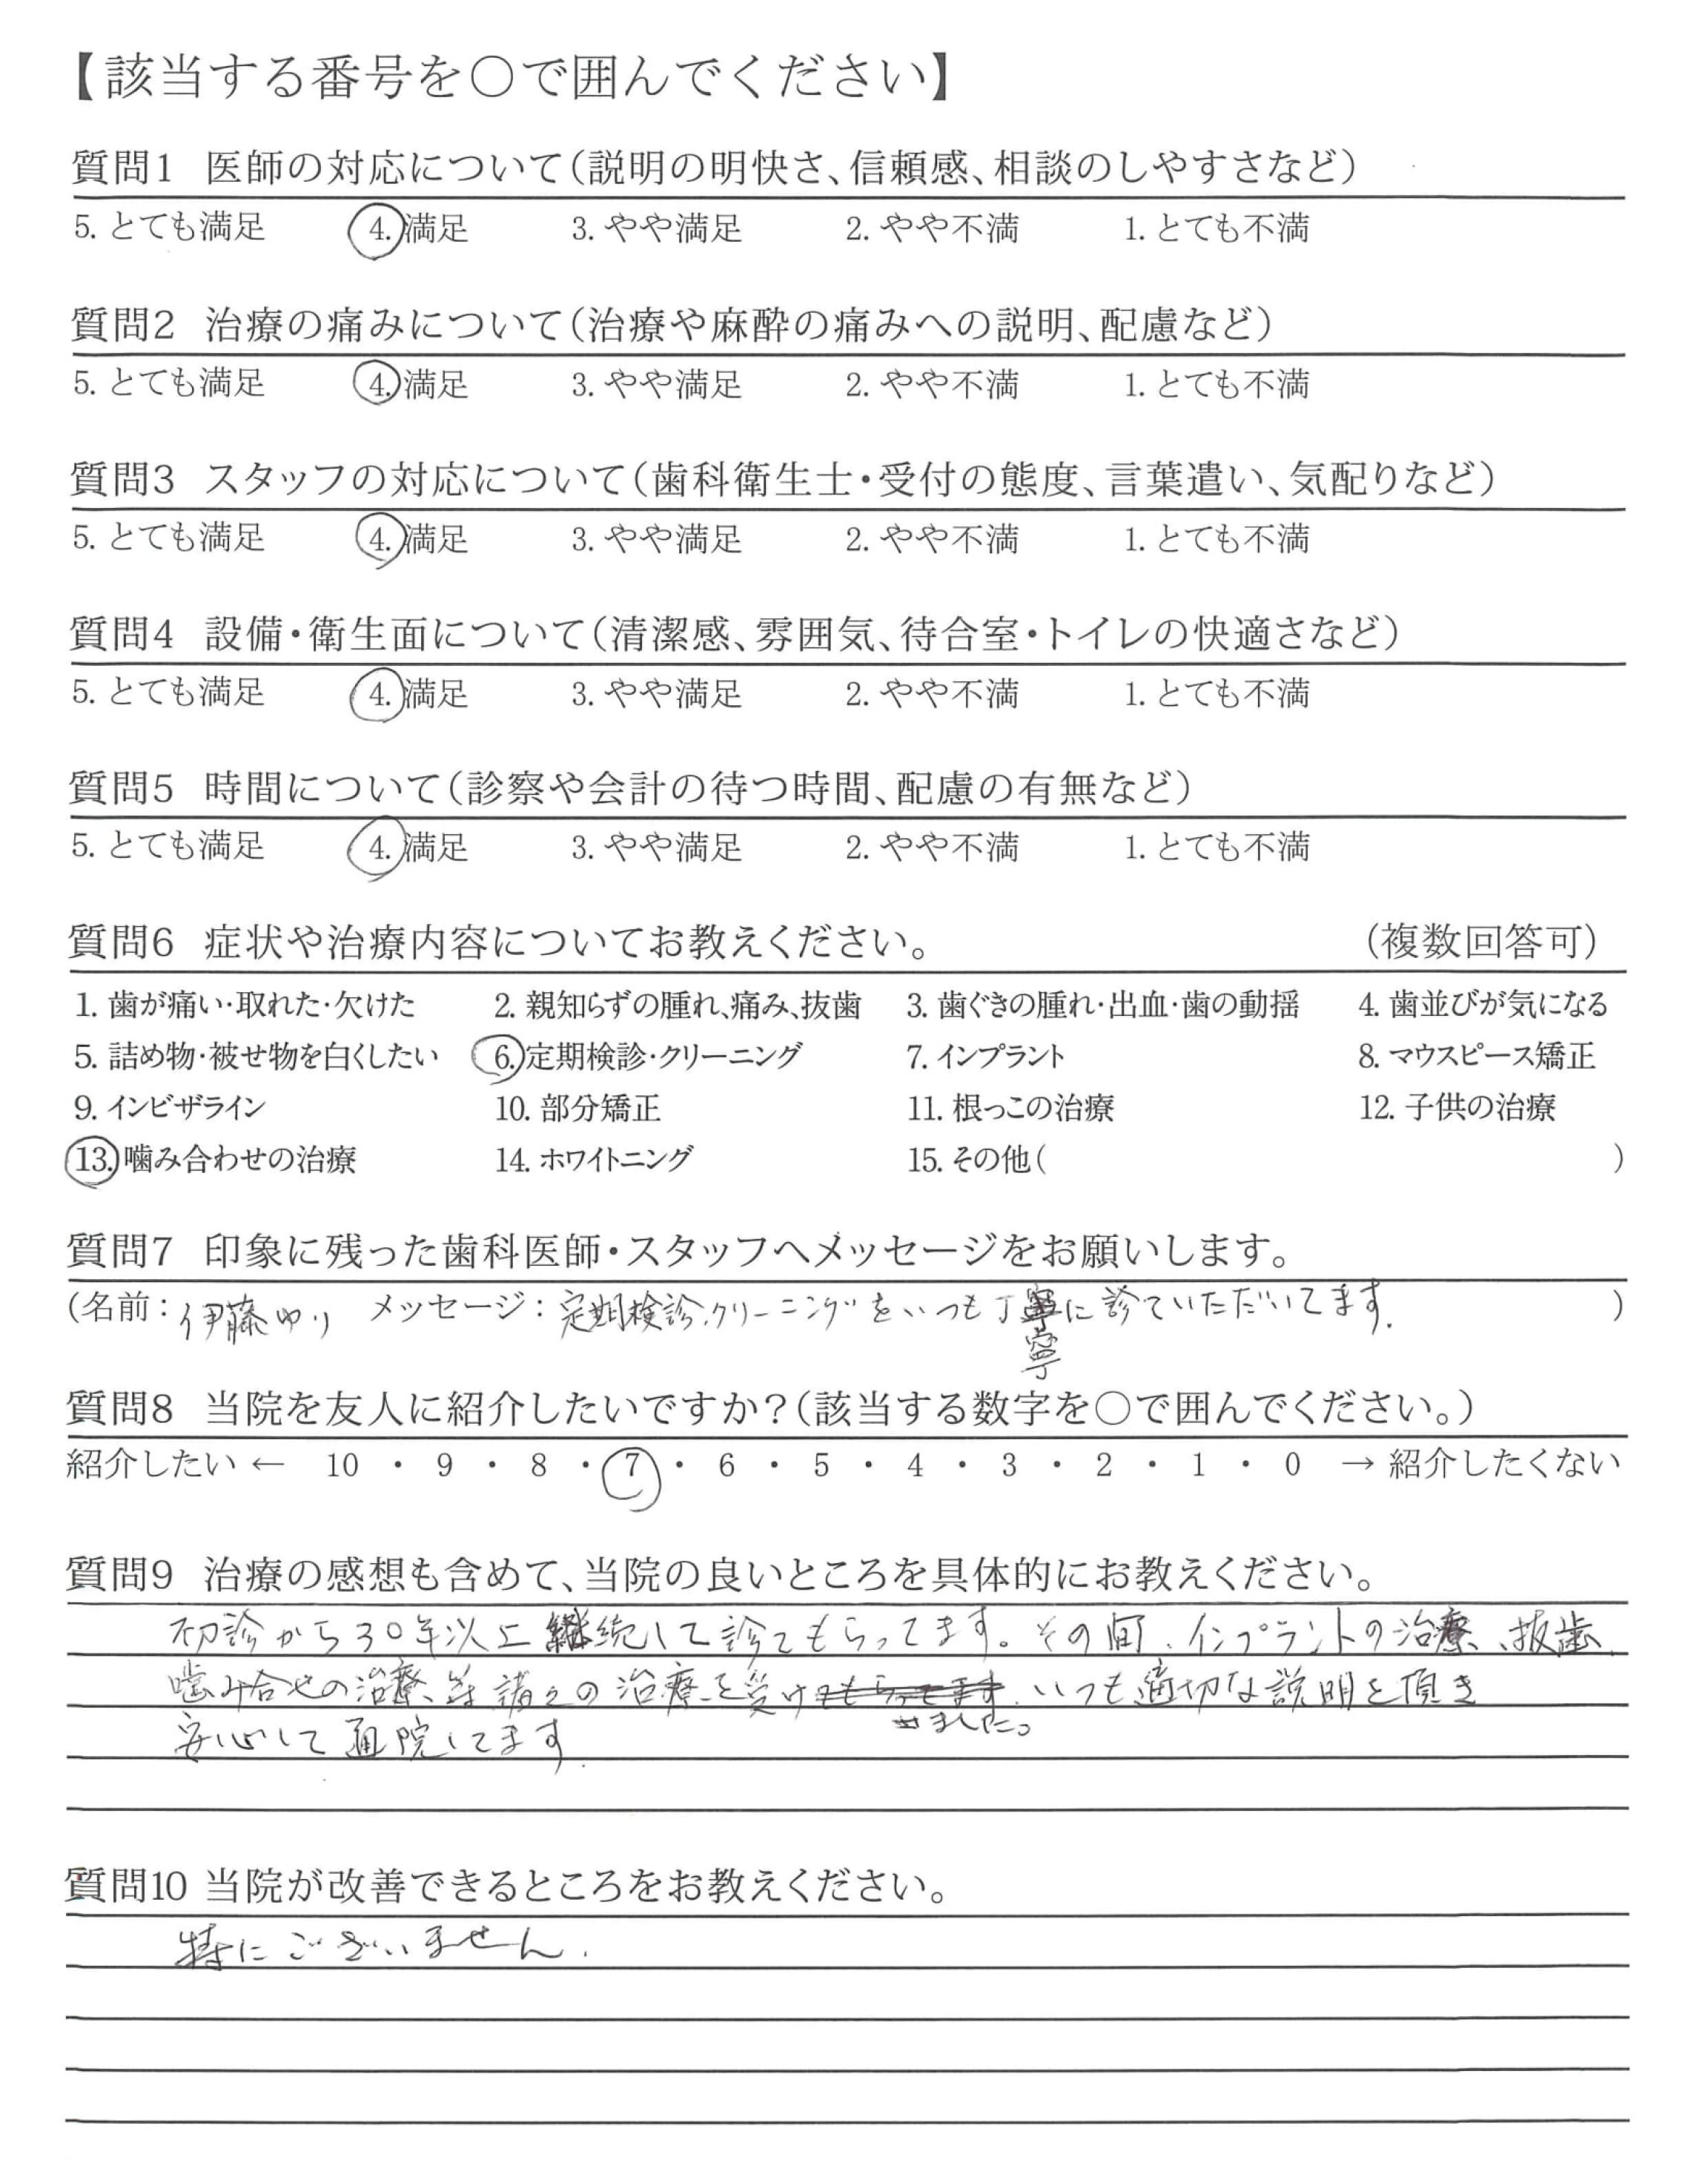 【該当する番号を〇で囲んでください】
質問1 医師の対応について(説明の明快さ、信頼感、相談のしやすさなど)
5. とても満足 4. 満足 3. やや満足 2. やや不満 1. とても不満
質問2 治療の痛みについて(治療や麻酔の痛みへの説明、配慮など)
5. とても満足 4. 満足 3. やや満足 2. やや不満 1. とても不満
質問3 スタッフの対応について(歯科衛生士・受付の態度、言葉遣い、気配りなど)
5. とても満足 4. 満足 3. やや満足 2. やや不満 1. とても不満
質問4 設備・衛生面について(清潔感、雰囲気、待合室・トイレの快適さなど)
5. とても満足 4. 満足 3. やや満足 2. やや不満 1. とても不満
質問5 時間について(診察や会計の待つ時間、配慮の有無など)
5. とても満足 4. 満足 3. やや満足 2. やや不満 1. とても不満
質問6 症状や治療内容についてお教えください。 (複数回答可)
1. 歯が痛い・取れた・欠けた 2. 親知らずの腫れ、痛み、抜歯 3. 歯ぐきの腫れ・出血・歯の動揺 4. 歯並びが気になる
5. 詰め物・被せ物を白くしたい 6. 定期検診・クリーニング 7. インプラント 8. マウスピース矯正
9. インビザライン 10. 部分矯正 11. 根っこの治療 12. 子供の治療
13. 噛み合わせの治療 14. ホワイトニング 15. その他( )
質問7 印象に残った歯科医師・スタッフへメッセージをお願いします。
(名前：伊藤ゆり メッセージ：定期検診.クリーニングをいつも丁寧に診ていただいてます. )
質問8 当院を友人に紹介したいですか？(該当する数字を〇で囲んでください。)
紹介したい ← 10 ・ 9 ・ 8 ・ 7 ・ 6 ・ 5 ・ 4 ・ 3 ・ 2 ・ 1 ・ 0 → 紹介したくない
質問9 治療の感想も含めて、当院の良いところを具体的にお教えください。
初診から30年以上継続して診てもらってます。その間、インプラントの治療、抜歯、
噛み合せの治療、等諸々の治療を受けました。いつも適切な説明を頂き
安心して通院してます.
質問10 当院が改善できるところをお教えください。
特にございません.